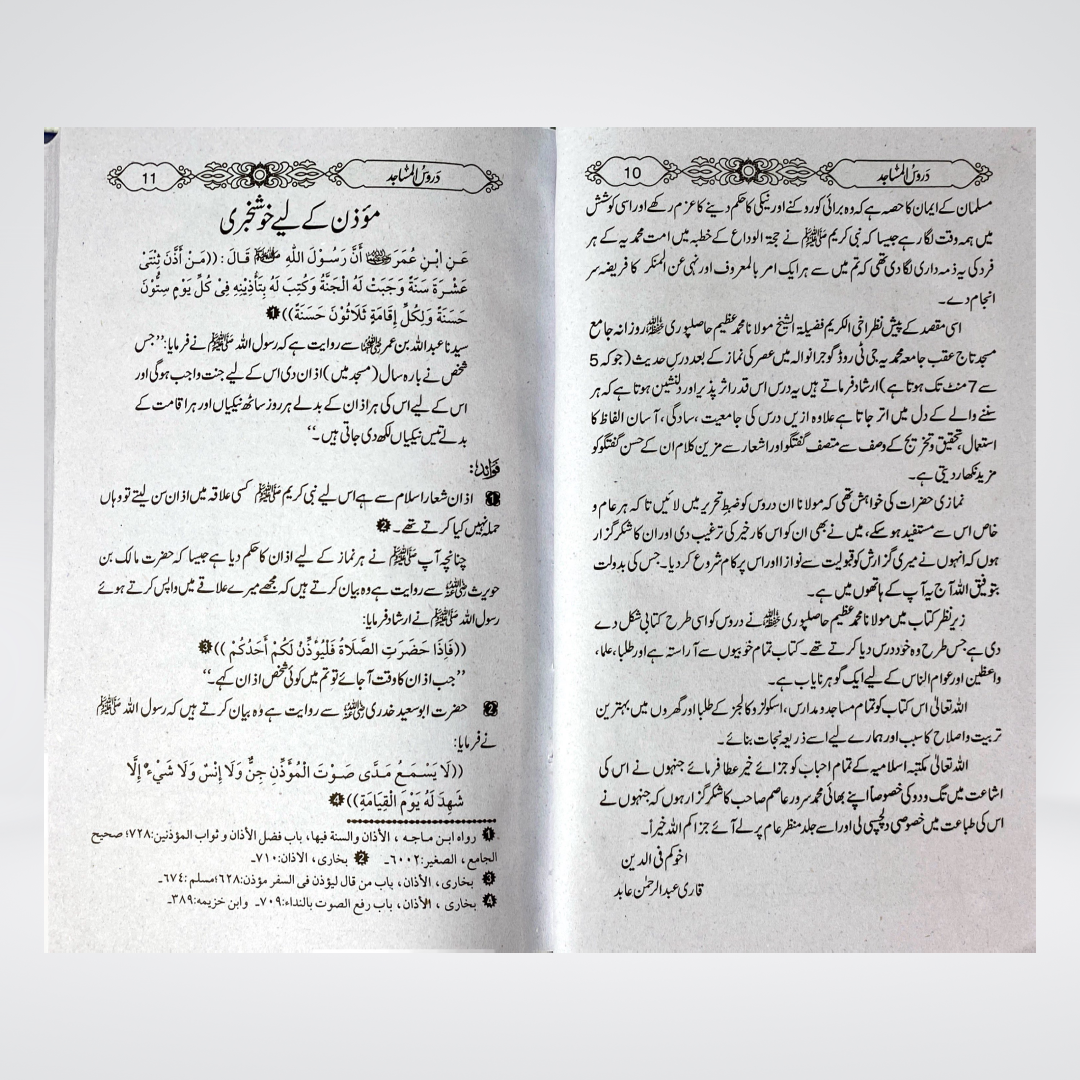 دروس المساجد 10
مسلمان کے ایمان کا حصہ ہے کہ وہ برائی کو روکنے اور نیکی کا حکم دینے کا عزم رکھے اور اسی کوشش
میں ہمہ وقت لگا رہے جیسا کہ نبی کریم ﷺ نے حجۃ الوداع کے خطبہ میں امت محمدیہ کے ہر
فرد کی یہ ذمہ داری لگا دی تھی کہ تم میں سے ہر ایک امر بالمعروف اور نہی عن المنکر کا فریضہ سر
انجام دے۔
اسی مقصد کے پیش نظر اخی الکریم فضیلۃ الشیخ مولانا محمد عظیم حاصلپوری حفظہ اللہ روزانہ جامع
مسجد تاج عقب جامعہ محمدیہ جی ٹی روڈ گوجرانوالہ میں عصر کی نماز کے بعد درس حدیث (جو کہ 5
سے 7 منٹ تک ہوتا ہے) ارشاد فرماتے ہیں یہ درس اس قدر اثر پذیر اور دلنشین ہوتا ہے کہ ہر
سننے والے کے دل میں اتر جاتا ہے علاوہ ازیں درس کی جامعیت، سادگی، آسان الفاظ کا
استعمال، تحقیق و تخریج کے وصف سے متصف گفتگو اور اشعار سے مزین کلام ان کے حسن گفتگو کو
مزید نکھار دیتی ہے۔
نمازی حضرات کی خواہش تھی کہ مولانا ان دروس کو ضبط تحریر میں لائیں تا کہ ہر عام و
خاص اس سے مستفید ہو سکے، میں نے بھی ان کو اس کار خیر کی ترغیب دی اور ان کا شکر گزار
ہوں کہ انہوں نے میری گزارش کو قبولیت سے نوازا اور اس پر کام شروع کر دیا۔ جس کی بدولت
بتوفیق اللہ آج یہ آپ کے ہاتھوں میں ہے۔
زیر نظر کتاب میں مولانا محمد عظیم حاصلپوری حفظہ اللہ نے دروس کو اسی طرح کتابی شکل دے
دی ہے جس طرح وہ خود درس دیا کرتے تھے۔ کتاب تمام خوبیوں سے آراستہ ہے اور طلبا، علما،
واعظین اور عوام الناس کے لیے ایک گوہر نایاب ہے۔
اللہ تعالیٰ اس کتاب کو تمام مساجد و مدارس، اسکولز و کالجز کے طلبا اور گھروں میں بہترین
تربیت و اصلاح کا سبب اور ہمارے لیے اسے ذریعہ نجات بنائے۔
اللہ تعالیٰ مکتبہ اسلامیہ کے تمام احباب کو جزائے خیر عطا فرمائے جنہوں نے اس کی
اشاعت میں تگ و دو کی خصوصاً اپنے بھائی محمد سرور عاصم صاحب کا شکر گزار ہوں کہ جنہوں نے
اس کی طباعت میں خصوصی دلچسپی لی اور اسے جلد منظر عام پر لے آئے جزاکم اللہ خیراً۔
اخوکم فی الدین
قاری عبدالرحمٰن عابد
دروس المساجد 11
مؤذن کے لیے خوشخبری
عَنِ ابْنِ عُمَرَ رضی اللہ عنہما أَنَّ رَسُوْلَ اللّٰهِ ﷺ قَالَ: ((مَنْ أَذَّنَ ثِنْتَیْ
عَشْرَةَ سَنَةً وَجَبَتْ لَهُ الْجَنَّةُ وَكُتِبَ لَهُ بِتَأْذِيْنِهِ فِیْ كُلِّ يَوْمٍ سِتُّوْنَ
حَسَنَةً وَلِكُلِّ إِقَامَةٍ ثَلَاثُوْنَ حَسَنَةً)) ❶
سیدنا عبداللہ بن عمر رضی اللہ عنہما سے روایت ہے کہ رسول اللہ ﷺ نے فرمایا: ”جس
شخص نے بارہ سال (مسجد میں) اذان دی اس کے لیے جنت واجب ہوگی اور
اس کے لیے اس کی ہر اذان کے بدلے ہر روز ساٹھ نیکیاں اور ہر اقامت کے
بدلے تیس نیکیاں لکھ دی جاتی ہیں۔“
فوائد:
1 اذان شعار اسلام سے ہے اس لیے نبی کریم ﷺ کسی علاقہ میں اذان سن لیتے تو وہاں
حملہ نہیں کیا کرتے تھے۔ ❷
چنانچہ آپ ﷺ نے ہر نماز کے لیے اذان کا حکم دیا ہے جیسا کہ حضرت مالک بن
حویرث رضی اللہ عنہ سے روایت ہے وہ بیان کرتے ہیں کہ مجھے میرے علاقے میں واپس کرتے ہوئے
رسول اللہ ﷺ نے ارشاد فرمایا:
((فَإِذَا حَضَرَتِ الصَّلَاةُ فَلْيُؤَذِّنْ لَكُمْ أَحَدُكُمْ)) ❸
”جب اذان کا وقت آ جائے تو تم میں کوئی شخص اذان کہے۔“
2 حضرت ابو سعید خدری رضی اللہ عنہ سے روایت ہے وہ بیان کرتے ہیں کہ رسول اللہ ﷺ
نے فرمایا:
((لَا يَسْمَعُ مَدَى صَوْتِ الْمُؤَذِّنِ جِنٌّ وَلَا إِنْسٌ وَلَا شَيْءٌ إِلَّا
شَهِدَ لَهُ يَوْمَ الْقِيَامَةِ)) ❹
❶ رواه ابن ماجه، الأذان والسنة فيها، باب فضل الأذان و ثواب المؤذنين: ٧٢٨؛ صحيح
الجامع، الصغير: ٦٠٠٢۔ ❷ بخاری، الاذان: ٧١٠۔
❸ بخاری، الأذان، باب من قال ليؤذن فى السفر مؤذن: ٦٢٨؛ مسلم: ٦٧٤۔
❹ بخاری، الأذان، باب رفع الصوت بالنداء: ٧٠٩۔ وابن خزيمه: ٣٨٩۔